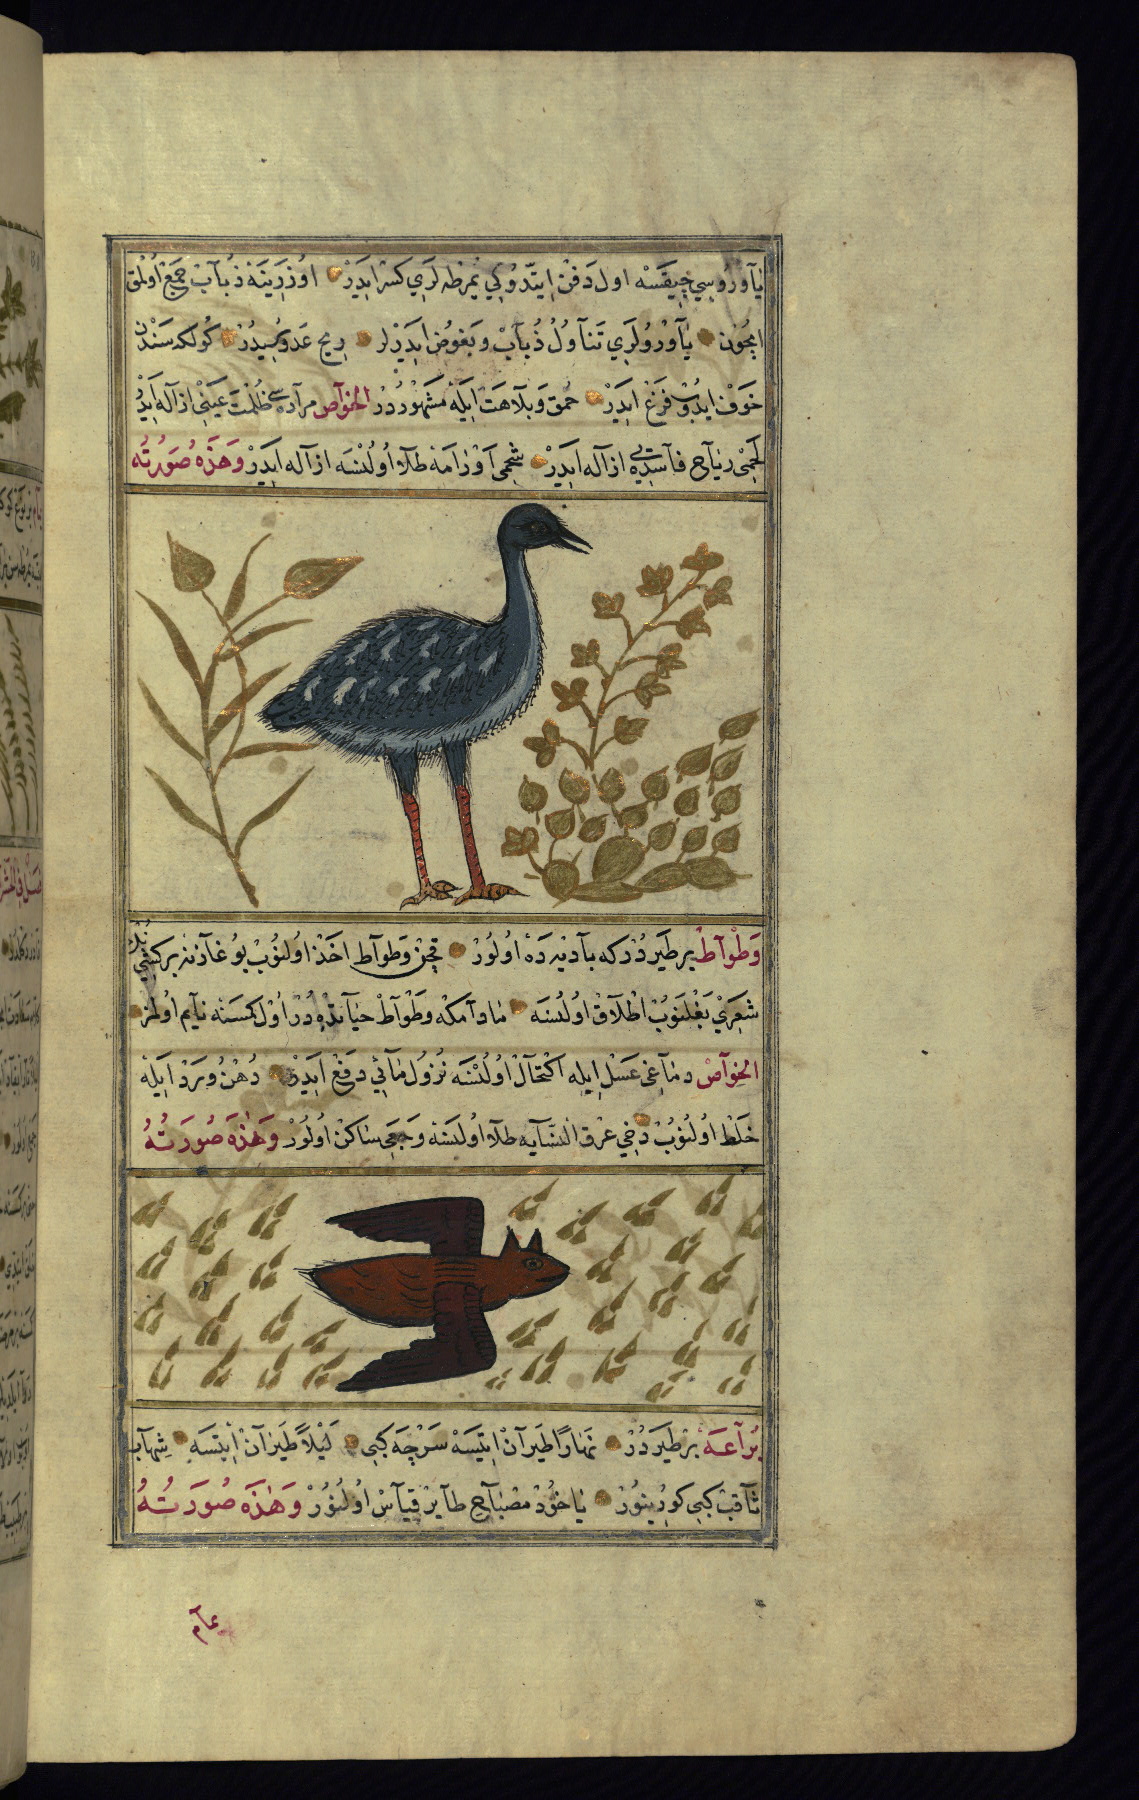 ياَورُوسِي چِيقَسْه اول دَفنْ اِيتّدُوكِي يُمُرْطَه لَرِي كَسْر ايدَرْ اوُزَرِينَهْ ذُبَابْ جَمعْ اوُلمَق
ايچُونْ يَاوْرُولَرِي تَنَاوُلْ ذُبَابْ وَبَعُوضْ ايدَرْلَر رِيحْ عَدُوسِيدُرْ كُولكَه سَنْدَن
خَوفْ ايدُوبْ فَزَعْ ايدَرْ حُمق وَبَلاَهَتْ ايلَه مَشهُورْدُرْ الخوَاص مرَارَه سِي ظُلمَتْ عَينِي ازاله ايدَرْ
لَحمِى رِيَاحِ فَاسِدَه يِي ازاله ايدَرْ شَحمِى اَوْرَامَه طِلاَ اوُلنْسَه ازاله ايدَرْ وَهَذَه صُورَتُه
وَطْوَاطْ بر طَيردُرْكه بَاديَه دَه اوُلُورْ قچَن وَطوَاط اخذ اوُلنُوبْ بوُغَازنَه بر كشِينُكْ
شَعرِي بَغْلَنُوبْ اطْلاَقْ اوُلنسَه مَادَامكه وَطْوَاطْ حَيَاتدَه دُرْ اوُل كمسَنَه نَايم اوُلمَز
الخوَاصْ دمَاغِى عَسَل ايلَه اكتحَالْ اوُلنْسَه نُزُول مَائِي دَفعْ ايدَرْ دُهن وَرْد ايلَه
خَلط اوُلنُوبْ دَخِي عرق النسَايَه طلاَ اوُلنسَه وَجَعِى سَاكنْ اوُلُورْ وَهَذَه صُورَتُهُ
يُرَاعَه بر طَيردُرْ نَهَارًا طَيَرَانْ ايتسَه سَرچَه كبِى لَيْلاً طَيرَانْ ايتسَه شِهَاب
ثَاقبْ كبِى كورينُورْ يَاخُودْ مصبَاحِ طَايرْ قيَاسْ اوُلنُورْ وَهَذَه صُورَتُهُ